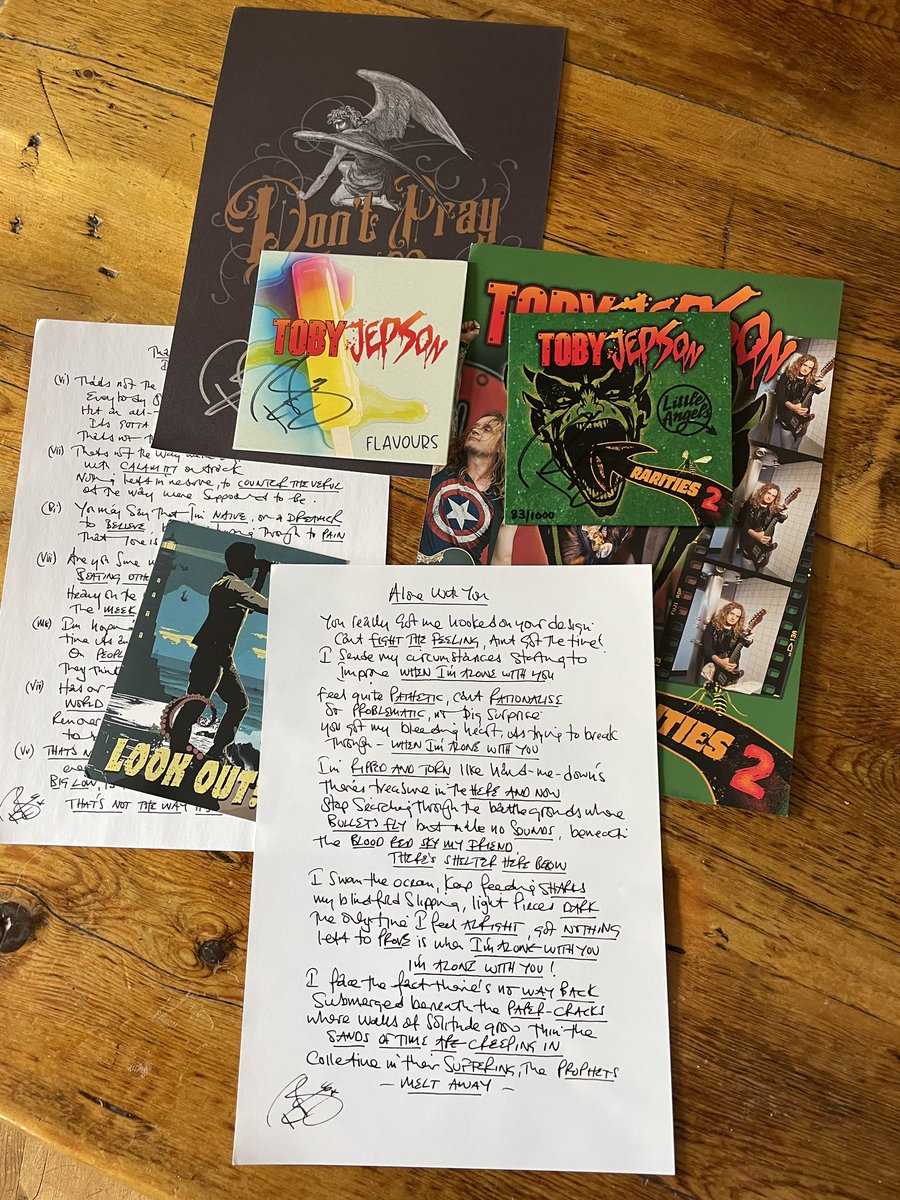 Don't Pray
TOBY JEPSON
FLAVOURS
TOBY JEPSON
TOBY JEPSON
Little
Angels
RARITIES 2
83/1000
RARITIES 2
(vi) That's not the
Everybody
Hit an all-
It's GOTTA
That's not
(vii) That's not the way
with CALAMITY on track
Nothing left in reserve, to COUNTER THE
of the way we're supposed to be.
(Bi) You may say that I'm NAIVE, or a DREAMER
to BELIEVE, through to PAIN
That
(viii) Are you sure
BEATING
Heavy on the
The MEEK
I'm hoping
time
Or PEOPLE
They think
(vii) Has our
WORLD
Remove
to
(vv) THAT'S
BIG LOW,
THAT'S NOT THE WAY
LOOK OUT!
Alone With You
You really got me hooked on your design
Can't FIGHT THE FEELING, Ain't got the time!
I sense my circumstances starting to
improve WHEN I'M ALONE WITH YOU
Feel quite PATHETIC, can't RATIONALISE
So PROBLEMATIC, no big surprise
you got my bleeding heart, it's trying to break
through - WHEN I'M ALONE WITH YOU
I'm RIPPED AND TORN like hand-me-down's
there's treasure in the HERE AND NOW
Stop searching through the battlegrounds where
BULLETS FLY but make no SOUNDS, beneath
the BLOOD RED SKY MY FRIEND,
THERE'S SHELTER HERE BELOW
I swam the ocean, keep feeding SHARKS
my blindfold slipping, light pierces DARK
The only time I feel ALRIGHT, got NOTHING
left to PROVE is when I'M ALONE WITH YOU
I'M ALONE WITH YOU!
I face the fact there's NO WAY BACK
Submerged beneath the PAPER-CRACKS
where walls of solitude grow thin the
SANDS OF TIME ARE CREEPING IN
Collective in their SUFFERING, The PROPHETS
- MELT AWAY -